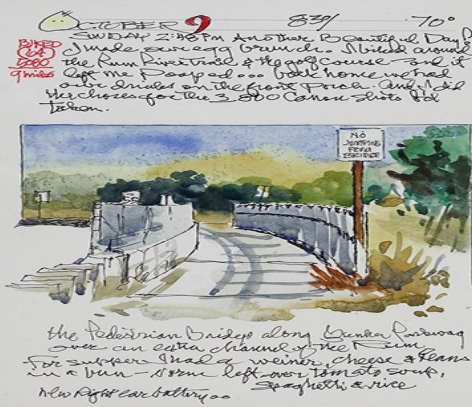 OCTOBER 9 830/ 70°
SUNDAY 2:48 PM Another Beautiful Day
I made us egg brunch. I biked around
BIKED
the Rum River Trail & the golf course and it
left me Pooped... back home we had
9 miles
our drinks on the front Porch. And I did
the chores for the 3,800 Canon shots I'd
taken.
NO
JUMPING
FROM
BRIDGE
the Pedestrian Bridge along Bunker Parkway
over an extra channel of the Rum
For supper I had a weiner, cheese & beans
in a bun - some left over tomato soup,
spaghetti & rice
new right ear battery